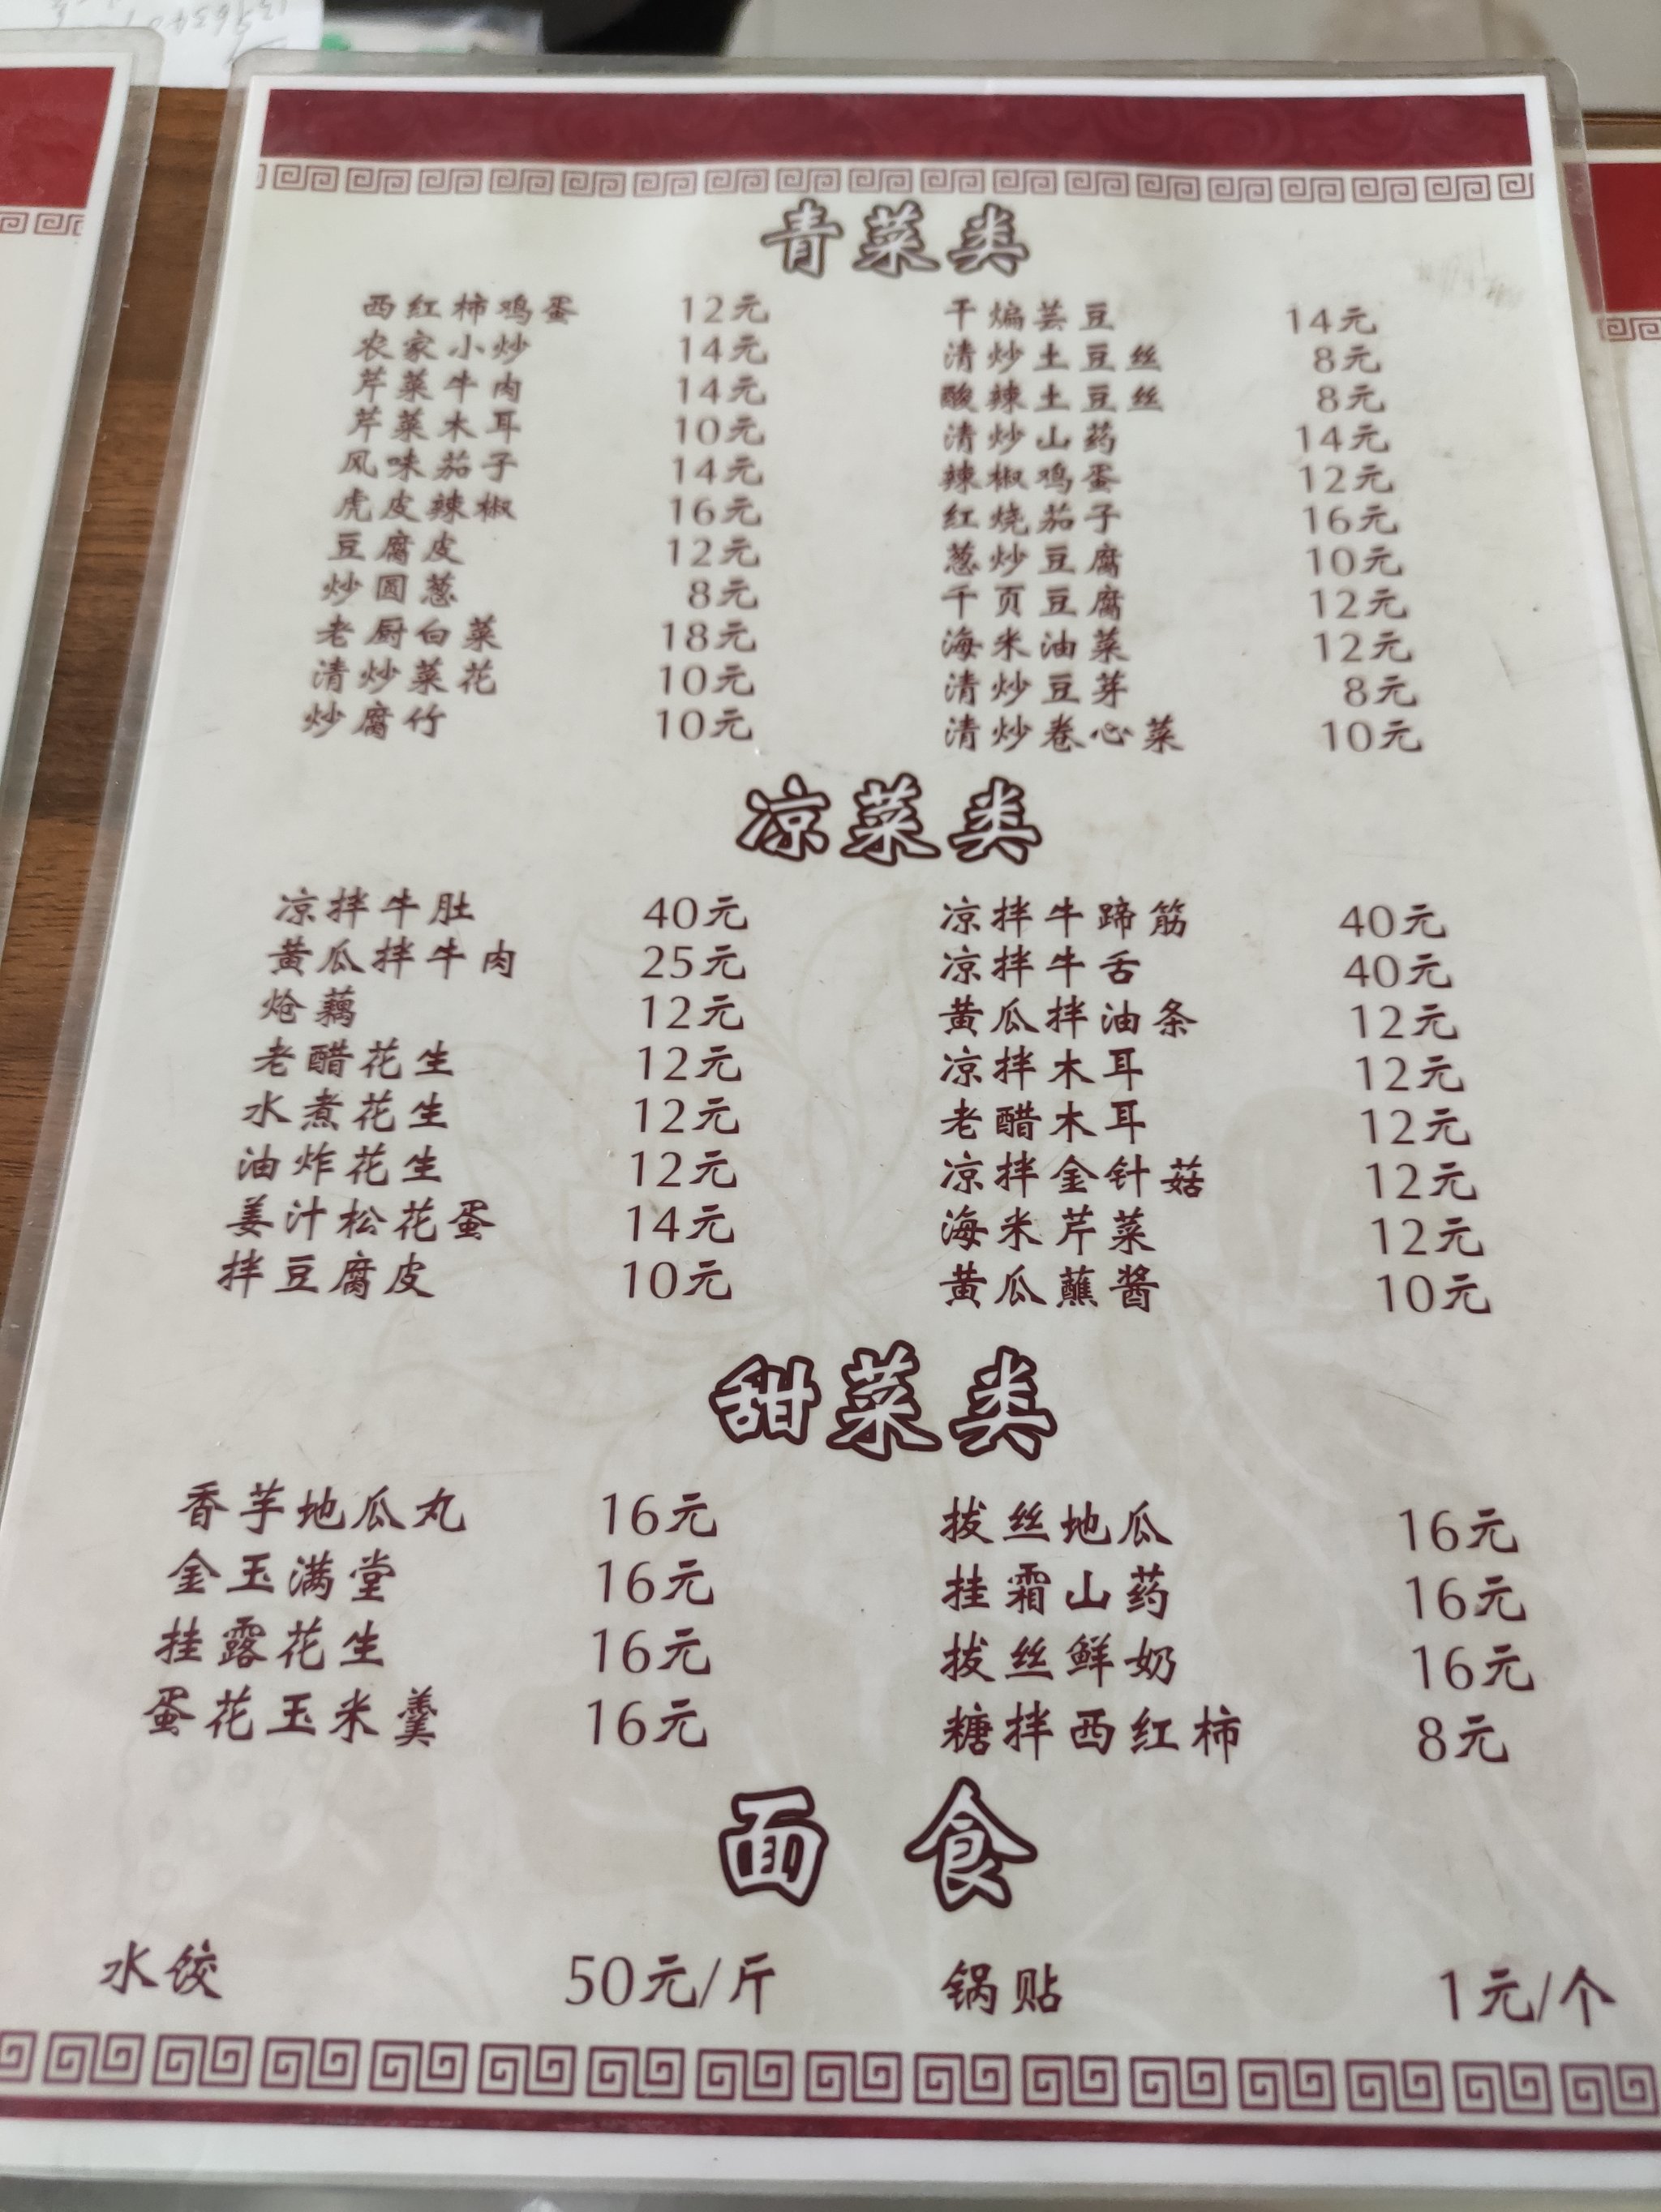 青菜类
西红柿鸡蛋 12元 干煸芸豆 14元
农家小炒 14元 清炒土豆丝 8元
芹菜牛肉 14元 酸辣土豆丝 8元
芹菜木耳 10元 清炒山药 14元
风味茄子 14元 辣椒鸡蛋 12元
虎皮辣椒 16元 红烧茄子 16元
豆腐皮 12元 葱炒豆腐 10元
炒圆葱 8元 千页豆腐 12元
老厨白菜 18元 海米油菜 12元
清炒菜花 10元 清炒豆芽 8元
炒腐竹 10元 清炒卷心菜 10元
凉菜类
凉拌牛肚 40元 凉拌牛蹄筋 40元
黄瓜拌牛肉 25元 凉拌牛舌 40元
炝藕 12元 黄瓜拌油条 12元
老醋花生 12元 凉拌木耳 12元
水煮花生 12元 老醋木耳 12元
油炸花生 12元 凉拌金针菇 12元
姜汁松花蛋 14元 海米芹菜 12元
拌豆腐皮 10元 黄瓜蘸酱 10元
甜菜类
香芋地瓜丸 16元 拔丝地瓜 16元
金玉满堂 16元 挂霜山药 16元
挂露花生 16元 拔丝鲜奶 16元
蛋花玉米羹 16元 糖拌西红柿 8元
面食
水饺 50元/斤 锅贴 1元/个